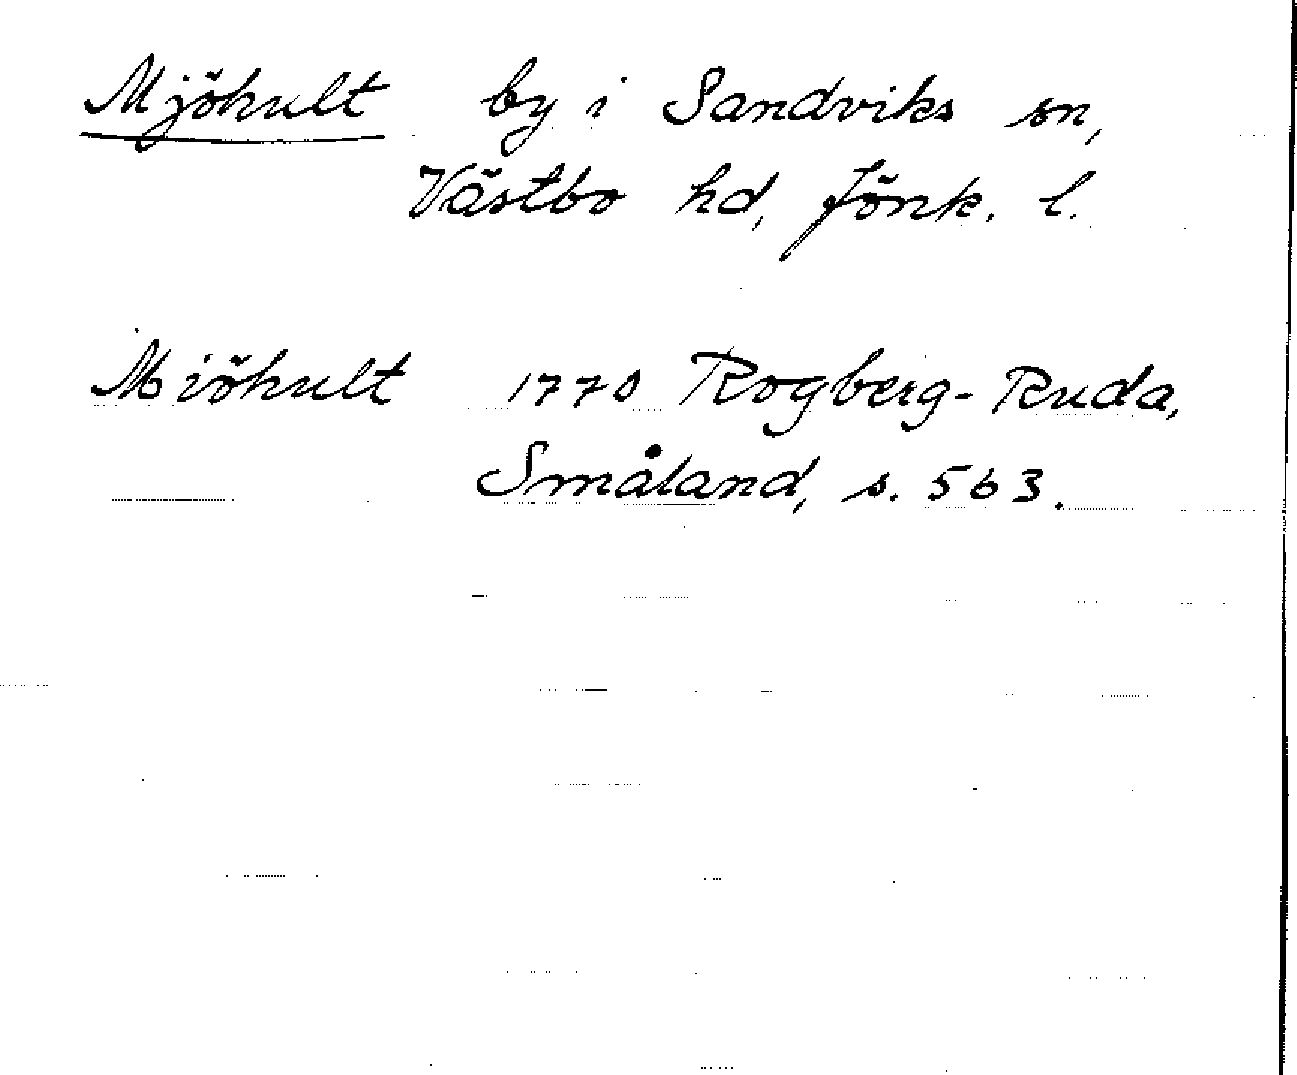 Mjöhult by i Sandviks sn,
Västbo hd, Jönk. l.
Miöhult 1770 Rogberg-Ruda,
Småland, s. 563.